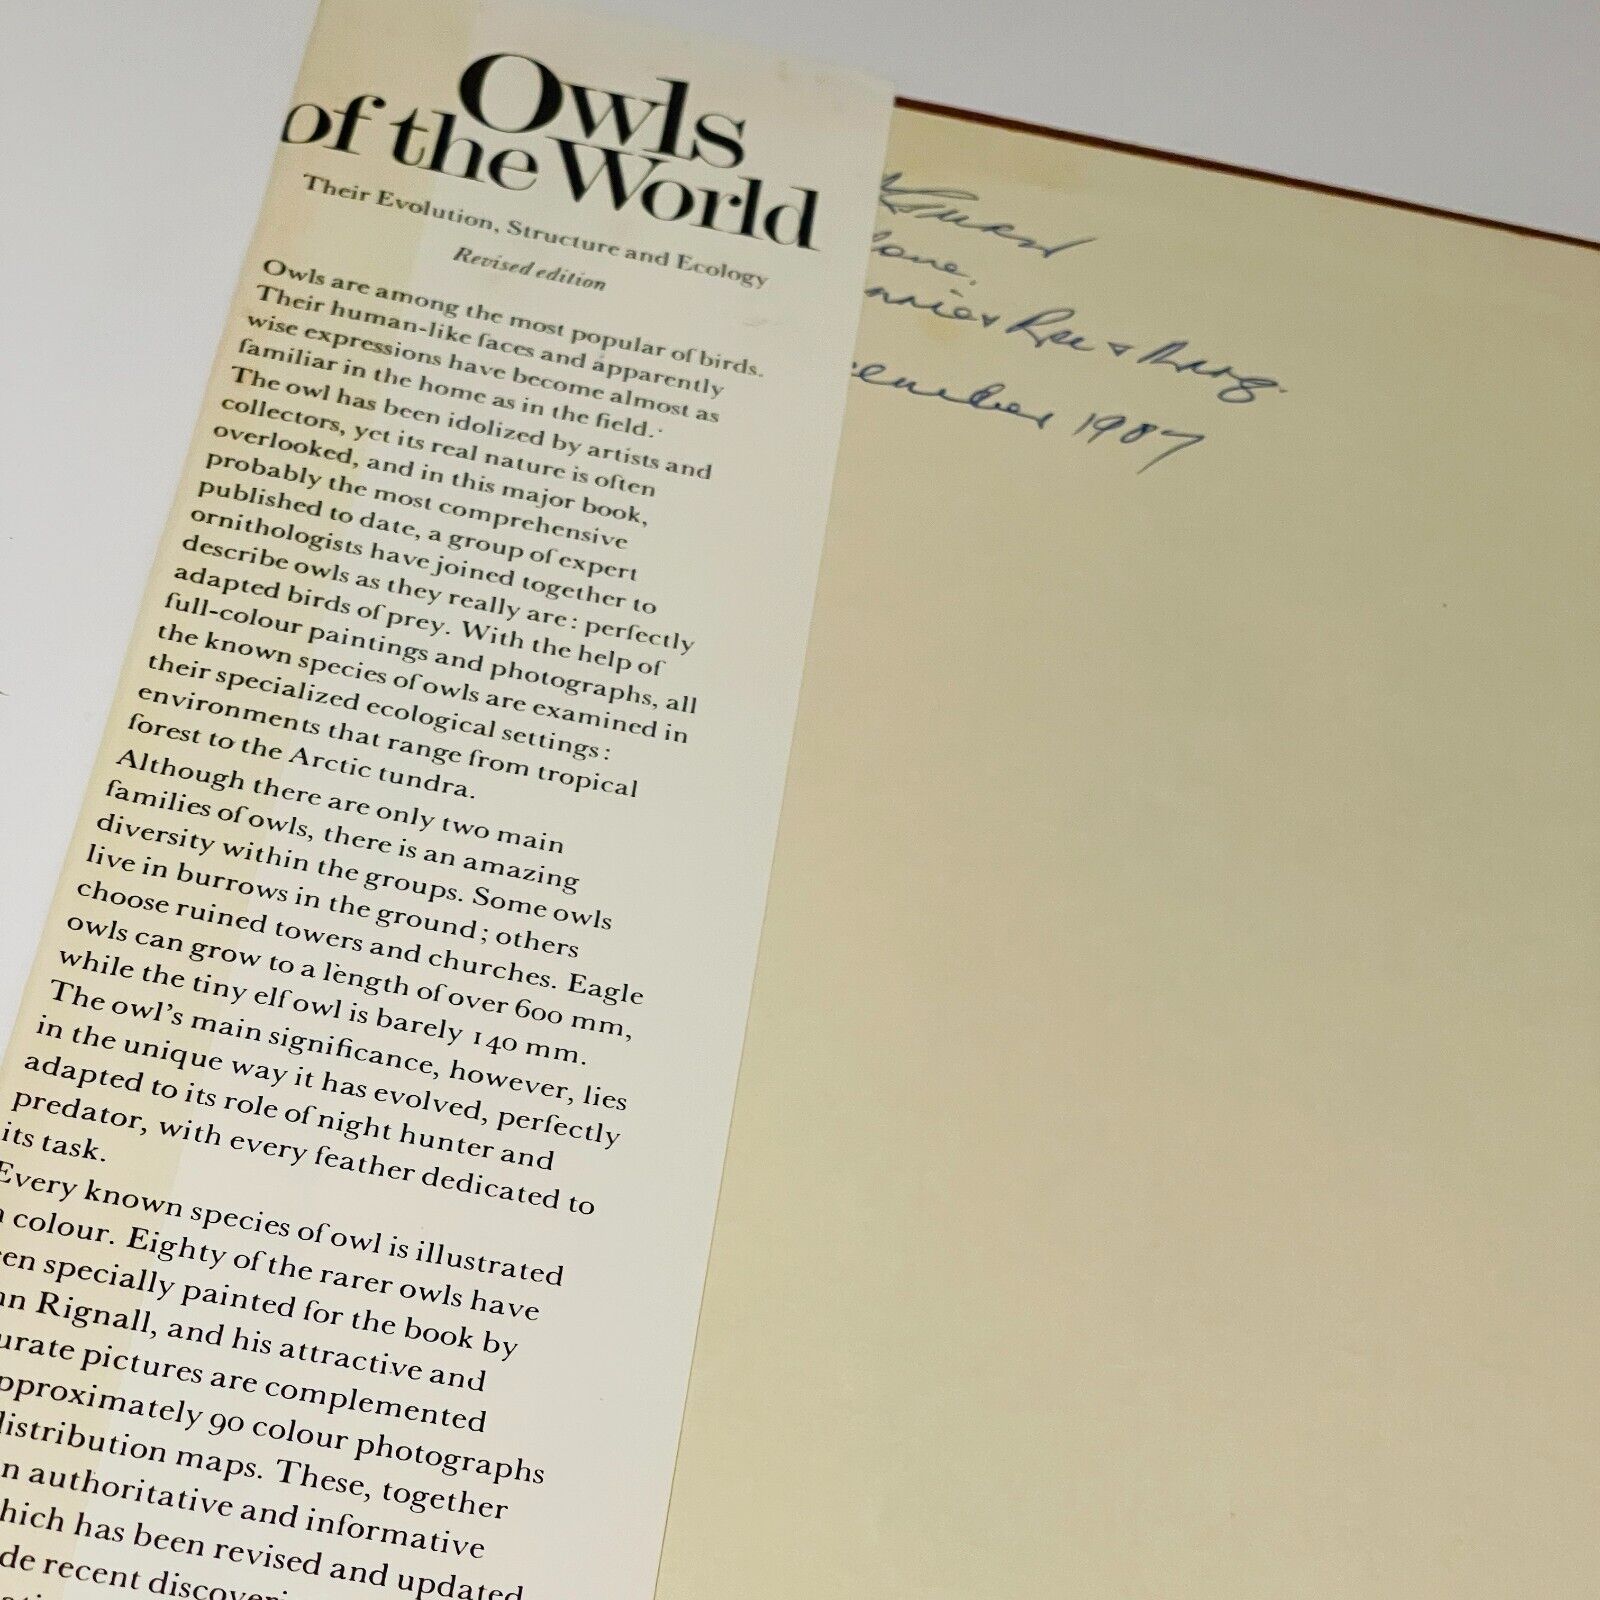 Owls
of the World
Their Evolution, Structure and Ecology
Revised edition
Owls are among the most popular of birds.
Their human-like faces and apparently
wise expressions have become almost as
familiar in the home as in the field.
The owl has been idolized by artists and
collectors, yet its real nature is often
overlooked, and in this major book,
probably the most comprehensive
published to date, a group of expert
ornithologists have joined together to
describe owls as they really are: perfectly
adapted birds of prey. With the help of
full-colour paintings and photographs, all
the known species of owls are examined in
their specialized ecological settings:
environments that range from tropical
forest to the Arctic tundra.
Although there are only two main
families of owls, there is an amazing
diversity within the groups. Some owls
live in burrows in the ground; others
choose ruined towers and churches. Eagle
owls can grow to a length of over 600 mm,
while the tiny elf owl is barely 140 mm.
The owl's main significance, however, lies
in the unique way it has evolved, perfectly
adapted to its role of night hunter and
predator, with every feather dedicated to
its task.
Every known species of owl is illustrated
colour. Eighty of the rarer owls have
een specially painted for the book by
nn Rignall, and his attractive and
urate pictures are complemented
pproximately 90 colour photographs
distribution maps. These, together
n authoritative and informative
hich has been revised and updated
de recent discoveri
1987